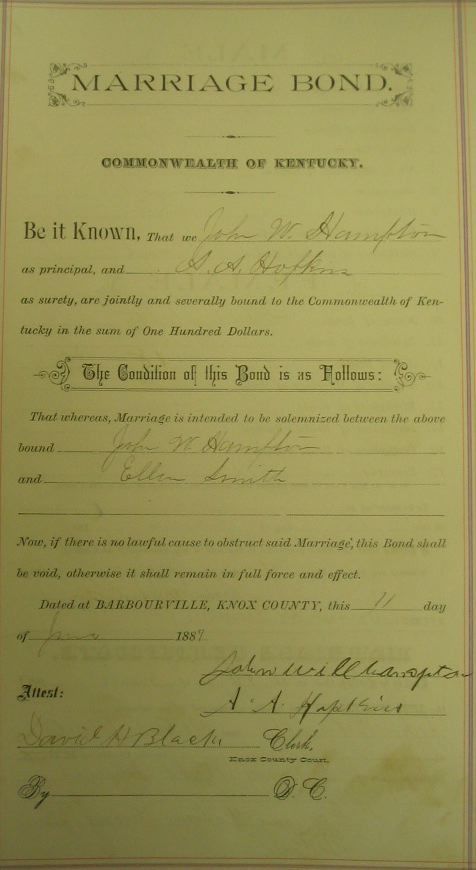 MARRIAGE BOND.
COMMONWEALTH OF KENTUCKY.
Be it Known, That we John W. Hampton
as principal, and A. A. Hopkins
as surety, are jointly and severally bound to the Commonwealth of Ken-
tucky in the sum of One Hundred Dollars.
The Condition of this Bond is as Follows:
That whereas, Marriage is intended to be solemnized between the above
bound John W Hampton
and Ellen Smith
Now, if there is no lawful cause to obstruct said Marriage, this Bond shall
be void, otherwise it shall remain in full force and effect.
Dated at BARBOURVILLE, KNOX COUNTY, this 11 day
of 1887
John Will hampton
Attest: A. A. Hopkins
David H Black Clerk,
Knox County Court.
By D. C.